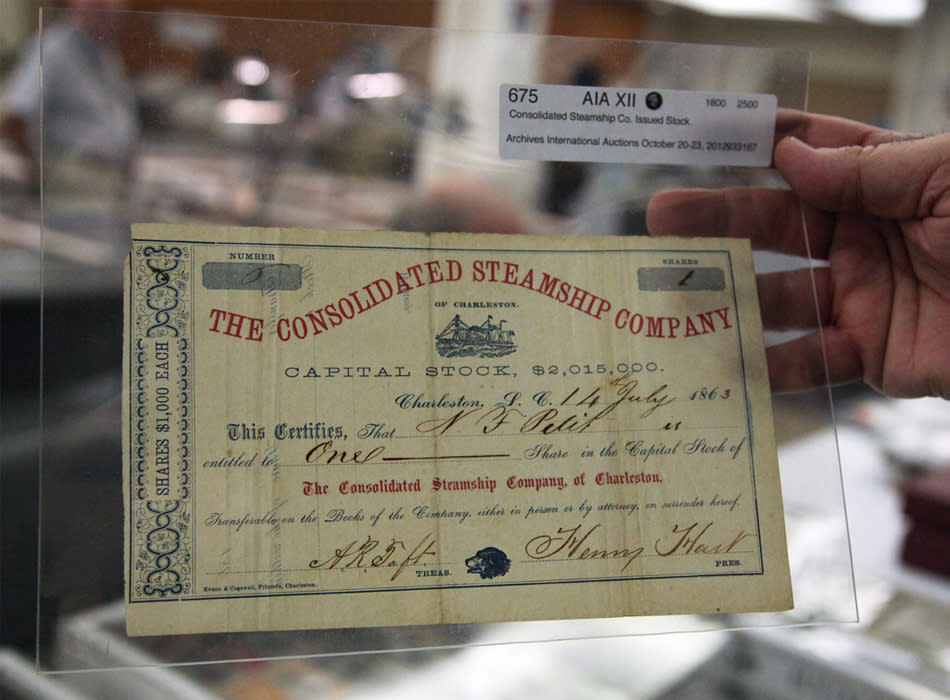 675 AIA XII 1800 2500
Consolidated Steamship Co. Issued Stock.
Archives International Auctions October 20-23, 2012933167
NUMBER SHARES
5 1
THE CONSOLIDATED STEAMSHIP COMPANY
OF CHARLESTON.
CAPITAL STOCK, $2,015,000.
Charleston, S. C. 14 July 1863
This Certifies, That N F Petit is
entitled to One Share in the Capital Stock of
The Consolidated Steamship Company, of Charleston.
Transferable on the Books of the Company, either in person or by attorney, on surrender hereof.
A.R. Taft. TREAS. Henry Hart PRES.
Evans & Cogswell, Printers, Charleston.
SHARES $1,000 EACH